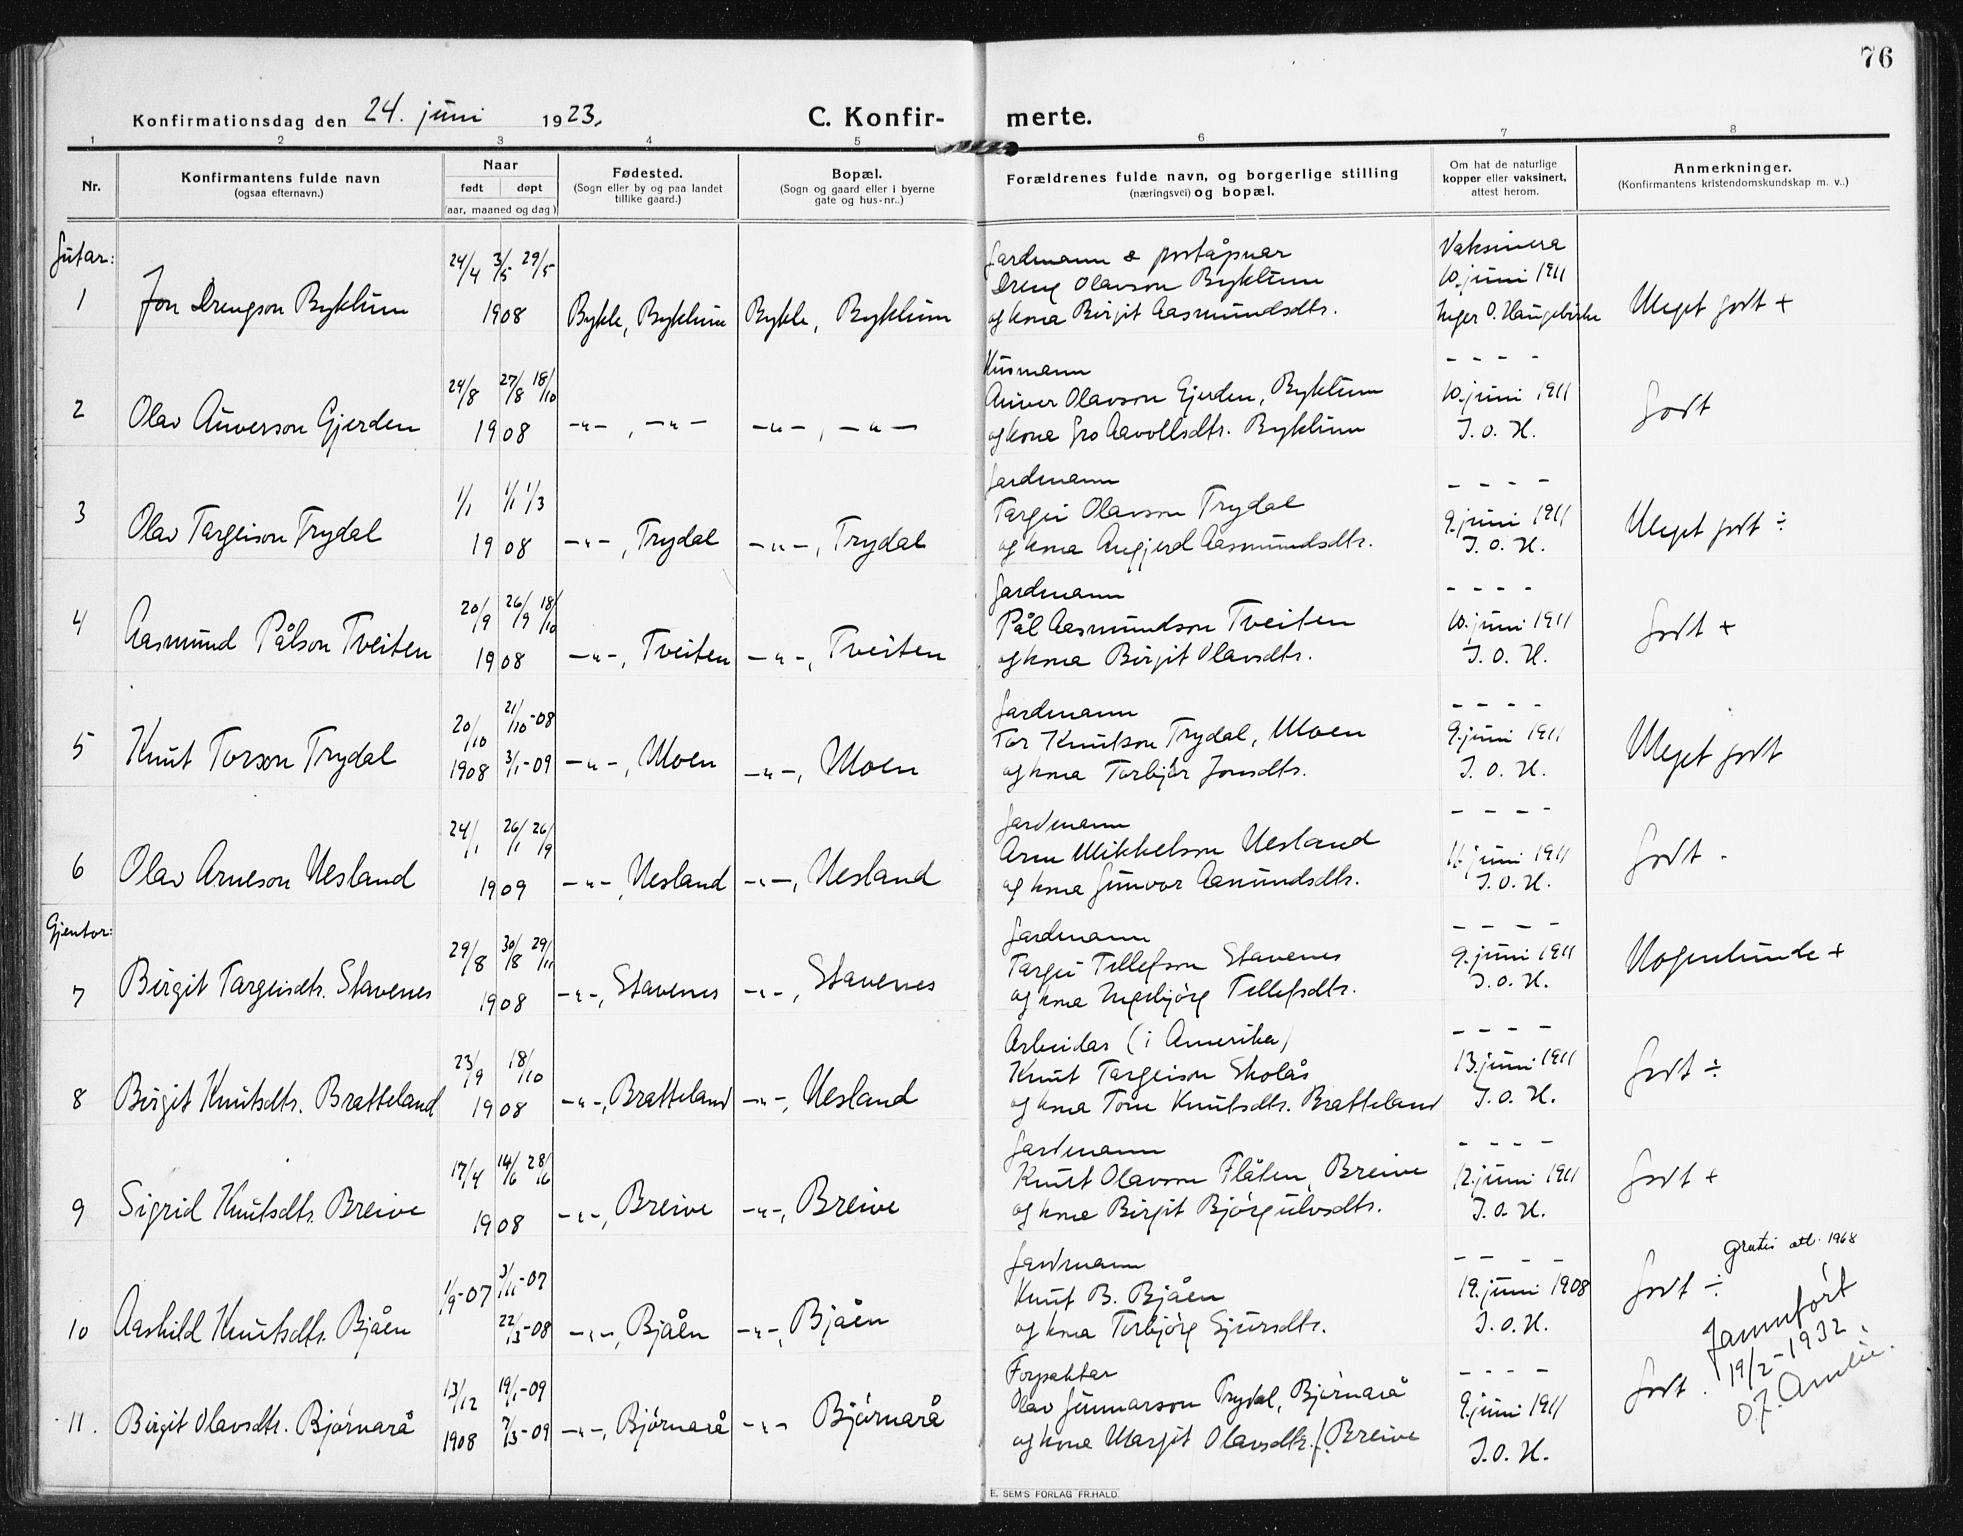 76
Konfirmationsdag den 24. juni 1923.
C. Konfir- merte.
1 2 3 4 5 6 7 8
Nr.
Konfirmantens fulde navn
(ogsaa efternavn.)
Naar
født døpt
(aar, maaned og dag)
Fødested.
(Sogn eller by og paa landet
tillike gaard.)
Bopæl.
(Sogn og gaard eller i byerne
gate og hus-nr..)
Forældrenes fulde navn, og borgerlige stilling
(næringsvei) og bopæl.
Om hat de naturlige
kopper eller vaksinert,
attest herom.
Anmerkninger.
(Konfirmantens kristendomskundskap m. v..)
Gutar:
1 Jon Drengson Byklum 24/4 3/5 29/5 1908 Bykle, Byklum Bykle, Byklum
Gardmann & poståpnar
Dreng Olavson Byklum
og kona Birgit Aasmundsdtr.
Vaksinera
10. juni 1911
Inger O. Haugebirke
Meget godt +
2 Olav Auverson Gjerden 24/8 27/8 18/10 1908 -"-, -"- -"-, -"-
Husmann
Auver Olavson Gjerden, Byklum
og kona Gro Aavollsdtr. Byklum
- - - -
10. juni 1911
I. O. H.
Godt
3 Olav Targeison Trydal 1/1 1/1 1/3 1908 -"-, Trydal -"-, Trydal
Gardmann
Targei Olavson Trydal
og kona Angjerd Aasmundsdtr.
- - - -
9. juni 1911
I. O. H.
Meget godt ÷
4 Aasmund Pålson Tveiten 20/9 26/9 18/10 1908 -"-, Tveiten -"-, Tveiten
Gardmann
Pål Aasmundson Tveiten
og kona Birgit Olavsdtr.
- - - -
10. juni 1911
I. O. H.
Godt +
5 Knut Torson Trydal 20/10 1908 21/10-08 3/1-09 -"-, Moen -"-, Moen
Gardmann
Tor Knutson Trydal, Moen
og kona Torbjør Jonsdtr.
- - - -
9. juni 1911
I. O. H.
Meget godt
6 Olav Arneson Nesland 24/1 26/1 26/9 1909 -"-, Nesland -"-, Nesland
Gardmann
Arne Mikkelson Nesland
og kona Gunvor Aasmundsdtr.
- - - -
11. juni 1911
I. O. H.
Godt -
Gjentor:
7 Birgit Targeisdtr. Stavenes 29/8 30/8 29/11 1908 -"-, Stavenes -"-, Stavenes
Gardmann
Targei Tellefson Stavenes
og kona Ingebjørg Tellefsdtr.
- - - -
9. juni 1911
I. O. H.
Nogenlunde +
8 Birgit Knutsdtr. Bratteland 23/9 18/10 1908 -"-, Bratteland -"-, Nesland
Arbeidar (i Amerika)
Knut Targeison Skolås
og kona Tone Knutsdtr. Bratteland
- - - -
13. juni 1911
I. O. H.
Godt ÷
9 Sigrid Knutsdtr. Breive 17/4 14/6 28/6 1908 -"-, Breive -"-, Breive
Gardmann
Knut Olavson Flåten, Breive
og kona Birgit Bjørgulvsdtr.
- - - -
12. juni 1911
I. O. H.
Godt +
10 Aashild Knutsdtr. Bjåen 1/9-07 3/11-07 22/3-08 -"-, Bjåen -"-, Bjåen
Gardmann
Knut B. Bjåen
og kona Torbjørg Sjursdtr.
- - - -
19. juni 1908
I. O. H.
Godt ÷
Gratis att. 1968
11. Birgit Olavsdtr. Bjørnarå 13/12 1908 19/1-09 7/3-09 -"-, Bjørnarå -"- Bjørnarå
Forpaktar
Olav Gunnarson Trydal, Bjørnarå
og kona Margit Olavsdtr. f. Breive
- - - -
9. juni 1911
I. O. H.
Godt.
Jamnført
19/2-1932.
E. SEM'S FORLAG FR.HALD.